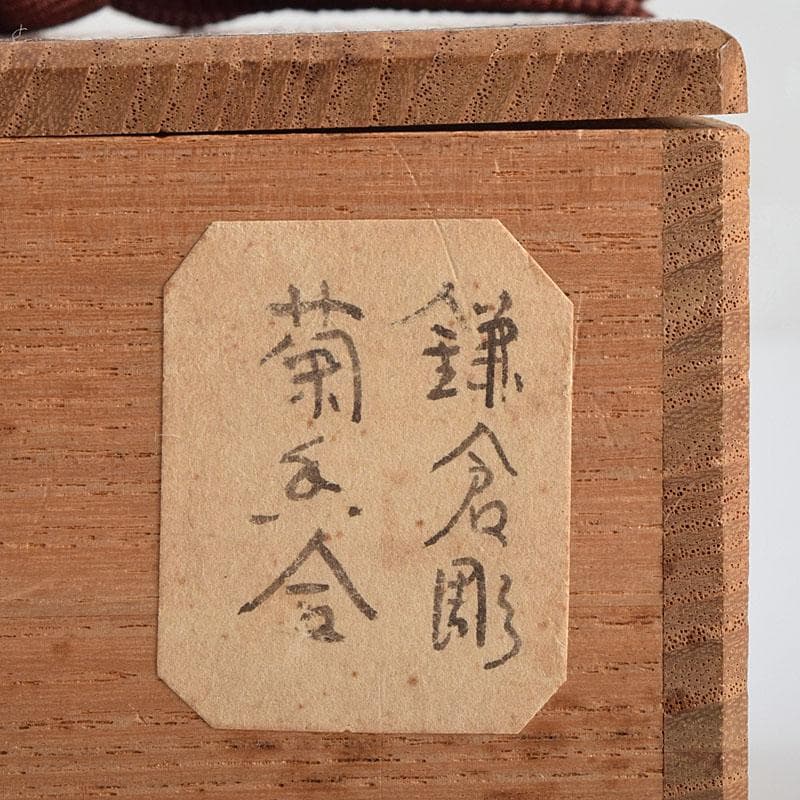 鎌倉彫
菊香合